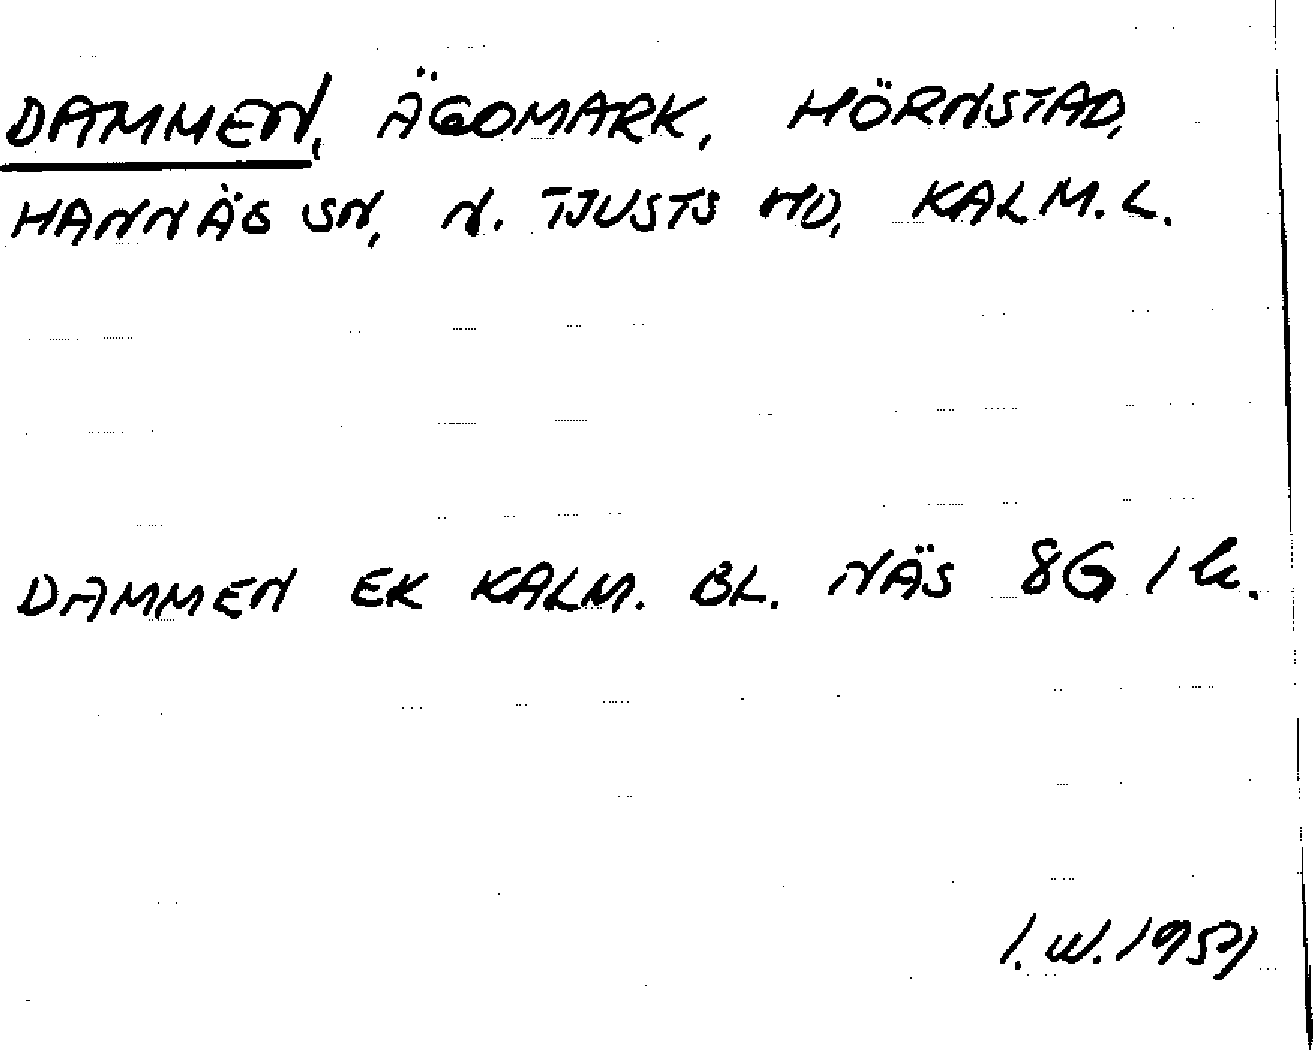 DAMMEN, ÄGOMARK, HÖRNSTAD,
HANNÄS SN, N. TJUSTS HD, KALM. L.
DAMMEN EK KALM. BL. NÄS 8G 1k.
I.W. 1959